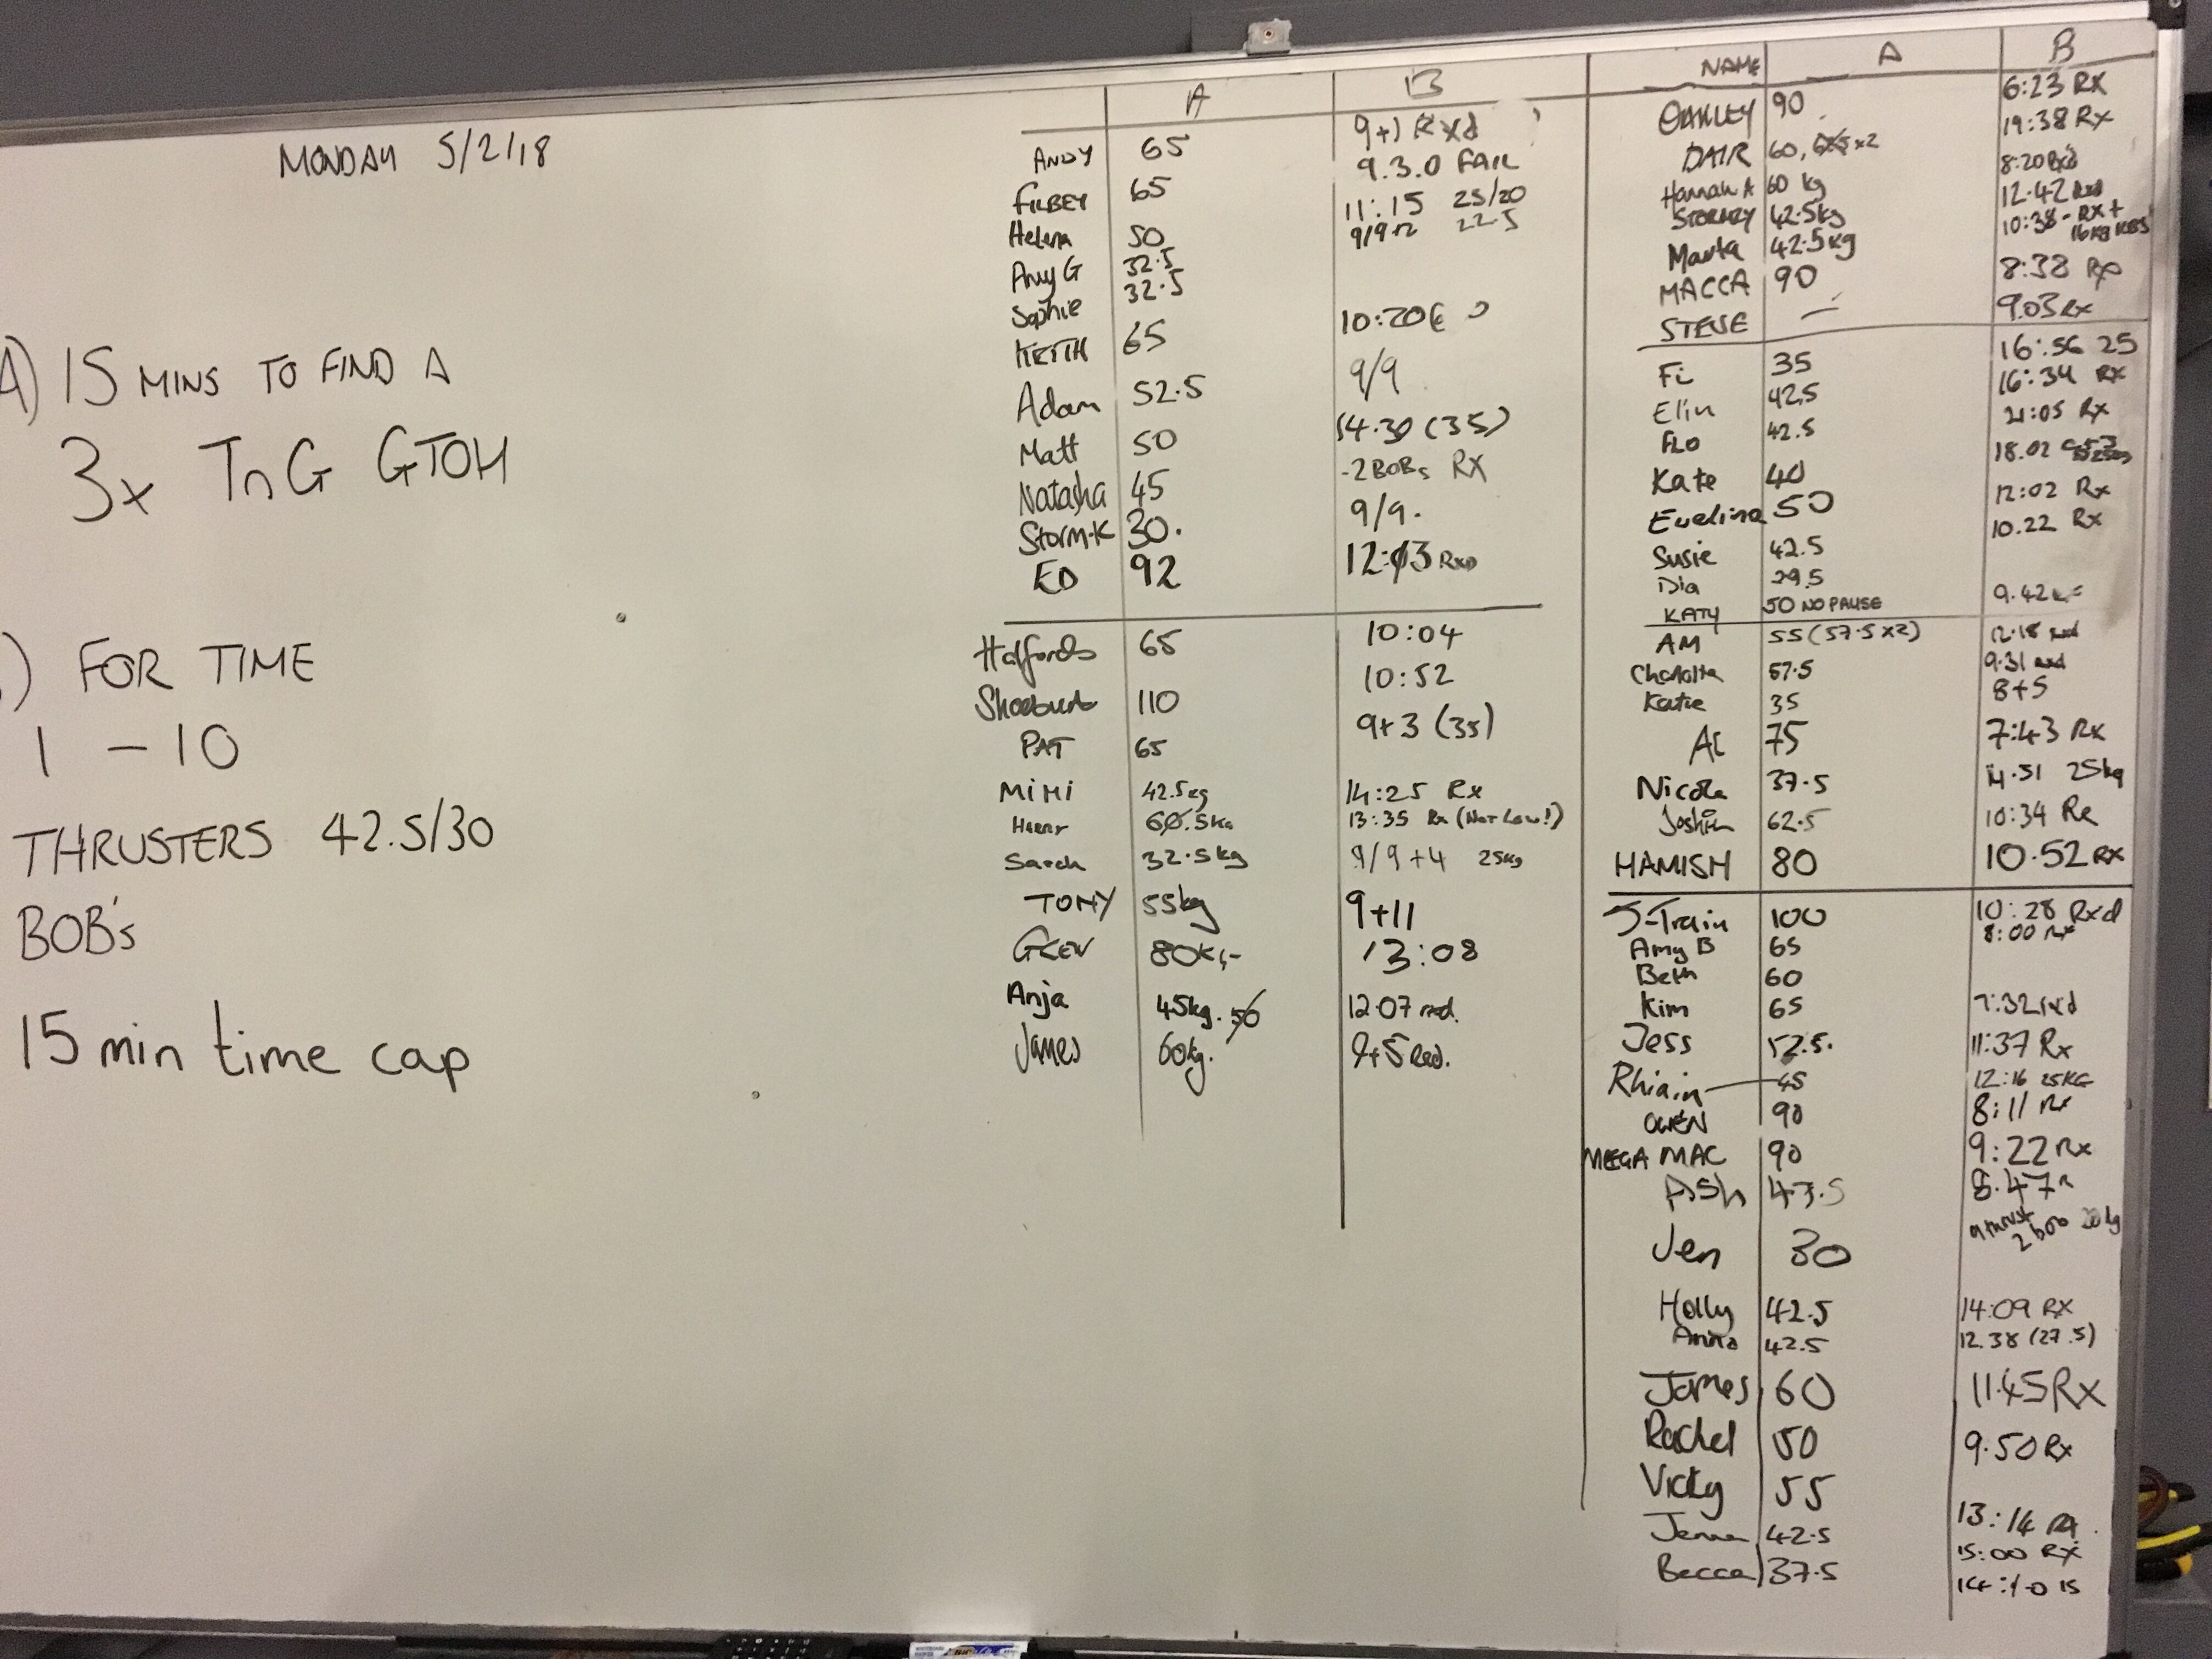 MONDAY 5/2/18
A) 15 MINS TO FIND A
3x TnG GTOH
) FOR TIME
1 - 10
THRUSTERS 42.5/30
BOB's
15 min time cap
A B
ANDY 65 9+1 Rxd
FILBEY 65 9.3.0 FAIL
Helena 50 11:15 25/20
Amy G 32.5 9/9+2 22.5
Sophie 32.5
KEITH 65 10:20
Adam 52.5 9/9
Matt 50 14.30 (35)
Natasha 45 -2 BOBs RX
Storm-K 30. 9/9.
ED 92 12:13 RXD
Halfords 65 10:04
110 10:52
PAT 65 9+3 (35)
MIMI 42.5kg 14:25 Rx
Harry 60.5kg 13:35 Rx (Not Low!)
Sarah 32.5kg 9/9 +4 25kg
TONY 55kg 9+11
GLEN 80KG 13:08
Anja 45kg. 50 12.07 rxd.
James 60kg. 9+5 Rxd.
NAME A B
OAKLEY 90 6:23 RX
DAIR 60, x2 19:38 Rx
Hannah A 60 kg 8:20 Rxd
STORMEY 42.5kg 12.42 Rxd
Marta 42.5kg 10:38 - RX + 16kg KBS
MACCA 90 8:38 Rx
STEVE — 9.03 Rx
Fi 35 16:56 25
Elin 42.5 16:34 Rx
FLO 42.5 21:05 Rx
Kate 40 18.02
Evelina 50 12:02 Rx
Susie 42.5 10.22 Rx
Dia 29.5
KATY 50 NO PAUSE 9.42
AM 55 (57.5 x2) 12.18 rxd
Charlotte 57.5 9.31 rxd
Katie 35 8+5
AL 75 7:43 Rx
Nicola 37.5 14.51 25kg
Joshim 62.5 10:34 Rx
HAMISH 80 10.52 RX
J-Train 100 10:28 Rxd
Amy B 65 8:00 rx
Beth 60
Kim 65 7:32 rxd
Jess 52.5. 11:37 Rx
Rhiain 45 12:16 25KG
OWEN 90 8:11 Rx
MEGA MAC 90 9:22 Rx
Ash 47.5 8.47 R
Jen 30 9 thrust 2 bob 20kg
Holly 42.5 14:09 RX
Anita 42.5 12.38 (27.5)
James 60 11.45 RX
Rachel 50 9.50 Rx
Vicky 55
Jenna 42.5 13:14 RX
Becca 37.5 15:00 RX